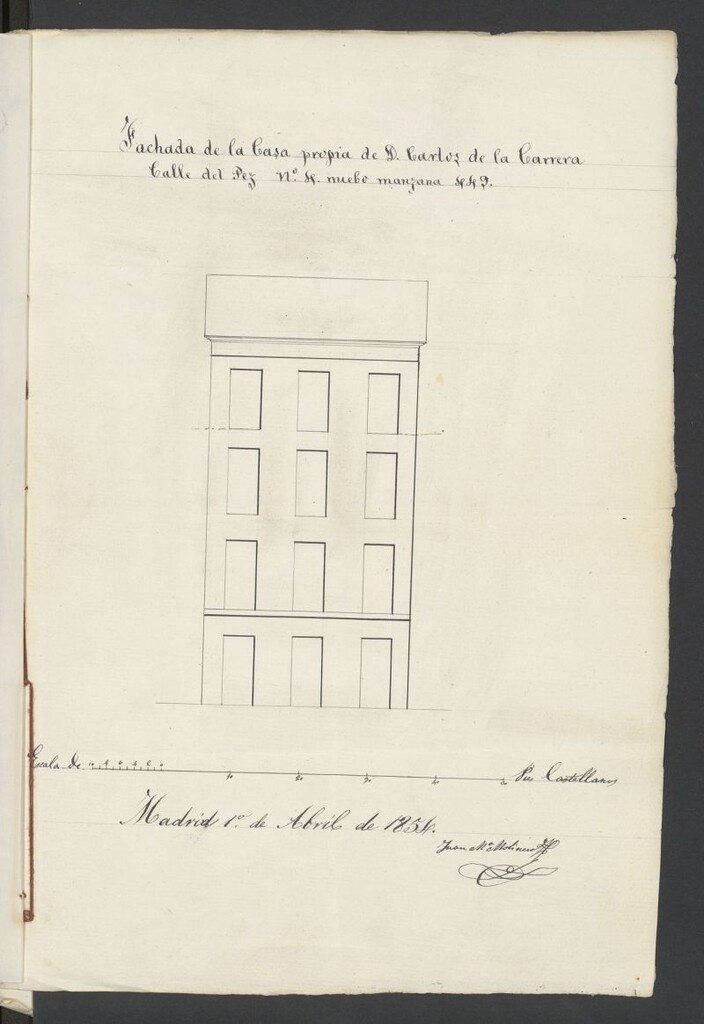 Fachada de la Casa propia de D. Carlos de la Carrera
Calle del Pez Nº. 4. nuebo manzana 449.
Escala de
10 20 30 40 50 Pies Castellanos
Madrid 1º. de Abril de 1854.
Juan Mª Molinero